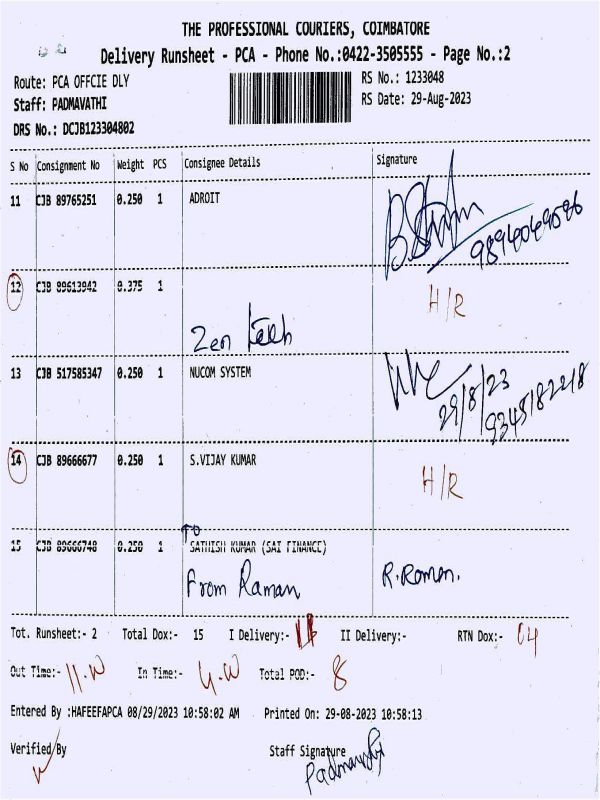 THE PROFESSIONAL COURIERS, COIMBATORE
Delivery Runsheet - PCA - Phone No.:0422-3505555 - Page No.:2
Route: PCA OFFCIE DLY
RS No.: 1233048
Staff: PADMAVATHI
RS Date: 29-Aug-2023
DRS No.: DCJB123304802
S No Consignment No Weight PCS Consignee Details Signature
11 CJB 89765251 0.250 1 ADROIT
9894049596
12 CJB 89613942 0.375 1 H/R
Zen tech
13 CJB 517585347 0.250 1 NUCOM SYSTEM
29/8/23
9345182218
14 CJB 89666677 0.250 1 S.VIJAY KUMAR
H/R
TO
15 CJB 89666748 0.250 1 SATHISH KUMAR (SAI FINANCE)
From Raman R.Roman.
Tot. Runsheet:- 2 Total Dox:- 15 I Delivery:- 11 II Delivery:- RTN Dox:- 04
Out Time:- 11.00 In Time:- 4.00 Total POD:- 8
Entered By :HAFEEFAPCA 08/29/2023 10:58:02 AM Printed On: 29-08-2023 10:58:13
Verified By Staff Signature